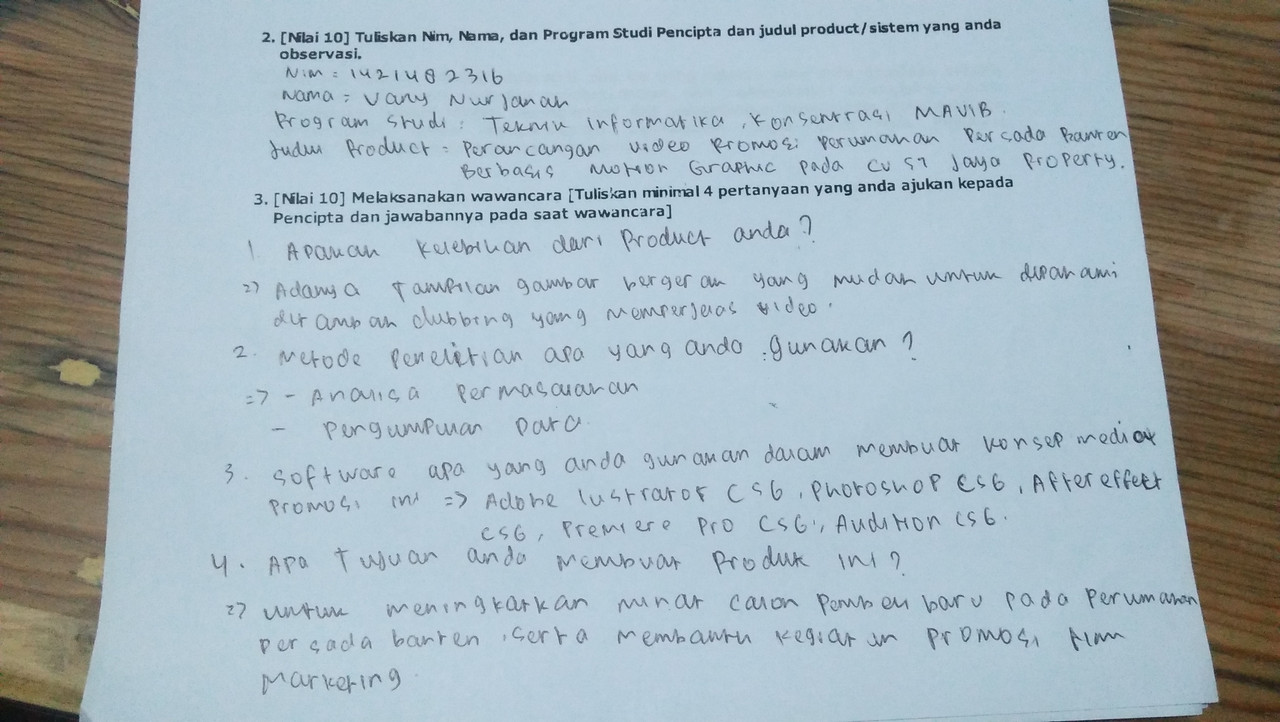 2. [Nilai 10] Tuliskan Nim, Nama, dan Program Studi Pencipta dan judul product/sistem yang anda
observasi.
Nim = 1421482316
Nama = Vany Nur Janah
Program Studi : Teknik Informatika, Konsentrasi MAVIB.
Judul Product = Perancangan Video Promosi Perumahan Persada Banten
Berbasis Motion Graphic pada CV ST Jaya Property.
3. [Nilai 10] Melaksanakan wawancara [Tuliskan minimal 4 pertanyaan yang anda ajukan kepada
Pencipta dan jawabannya pada saat wawancara]
1 Apakah Kelebihan dari Product anda?
=> Adanya tampilan gambar bergerak yang mudah untuk dipahami
ditambah dubbing yang memperjelas video.
2. Metode Penelitian apa yang anda gunakan?
=> - Analisa Permasalahan
- Pengumpulan Data.
3. Software apa yang anda gunakan dalam membuat konsep media
Promosi ini => Adobe lustrator CS6, Photoshop CS6, After effect
CS6, Premiere Pro CS6, Audition CS6.
4. Apa Tujuan anda membuat Produk ini?
=> untuk meningkatkan minat calon Pembeli baru pada Perumahan
persada banten, serta membantu kegiatan Promosi tim
Marketing